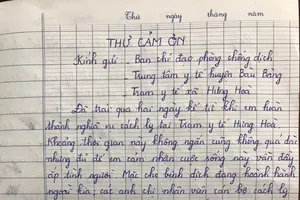 Thứ ngày tháng năm
THƯ CẢM ƠN
Kính gửi - Ban chỉ đạo phòng chống dịch
- Trung tâm y tế huyện Bàu Bàng
- Trạm y tế xã Hưng Hoà
Đã trải qua hai ngày kể từ khi em hoàn
thành nghĩa vụ cách ly tại Trạm y tế Hưng Hoà
Khoảng thời gian này không ngắn cũng không quá dài
nhưng đủ để em cảm nhận cuộc sống này vẫn đầy
ắp tình người. Mặc cho bệnh dịch đang hoành hành
ngoài kia, các anh chị nhân viên cán bộ cách ly